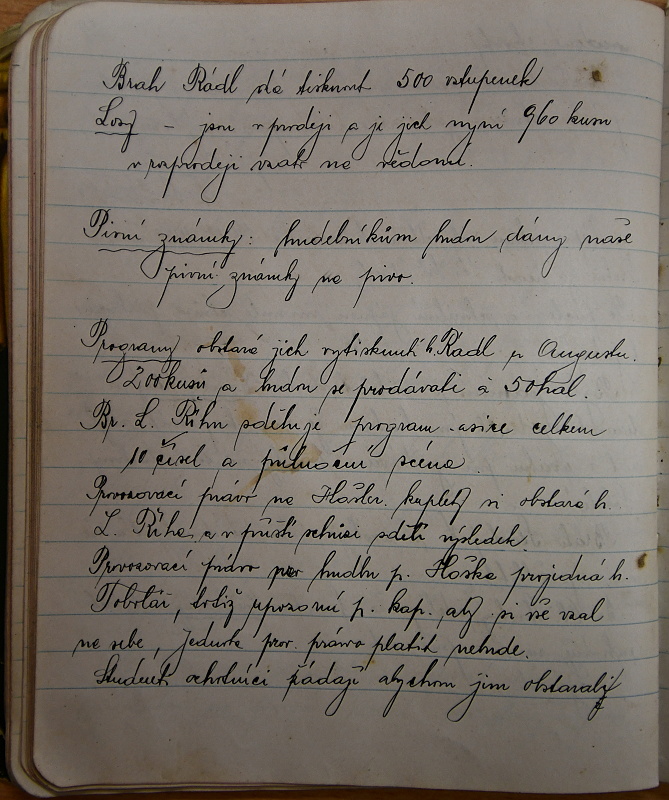 Bratr Rádl dá tisknout 500 vstupenek
Losy – jsou v prodeji a je jich nyní 960 kusu
v rozprodeji vzato na vědomí.
Pivní známky: hudebníkům budou dány naše
pivní známky na pivo.
Programy obstará jich vytisknutí b. Rádl u Augustu.
200 kusů a budou se prodávati à 50 hal.
Br. L. Říha sděluje program asice celkem
10 čísel a půlnoční scéna.
Provozovací právo na Hašler. kuplety si obstará b.
L. Říha a v příští schůzi sdělí výsledek.
Provozovací právo pro hudbu p. Haška projedná b.
, totiž upozorní p. kap. aby si vše vzal
na sebe, jednota prov. právo platit nebude.
Studenti ochotníci žádají abychom jim obstarali